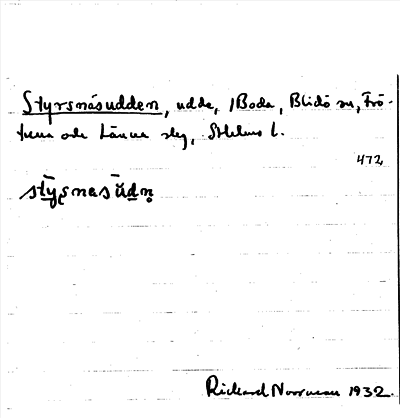 Styrsnäsudden, udde, /Boda, Blidö sn, Frö-
tuna och Länna slg, Sthlms l.
472
stỹṣnasŭdṇ
Rickard Norrman 1932.